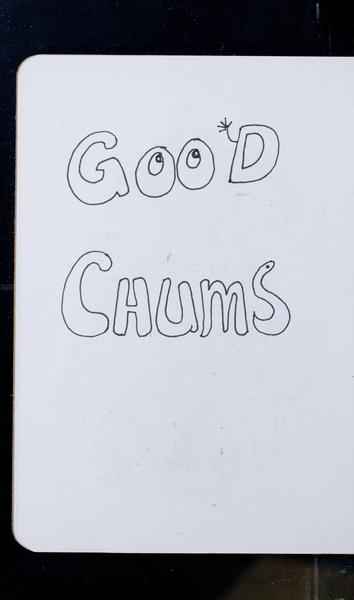 GOOD
CHUMS